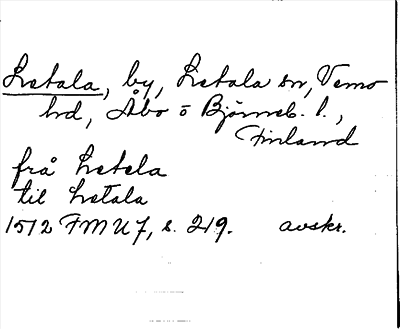 Letala, by, Letala sn, Vemo
hd, Åbo o Björneb. l.,
Finland
frå Letela
til Letala
1512 FMU 7, s. 219. avskr.